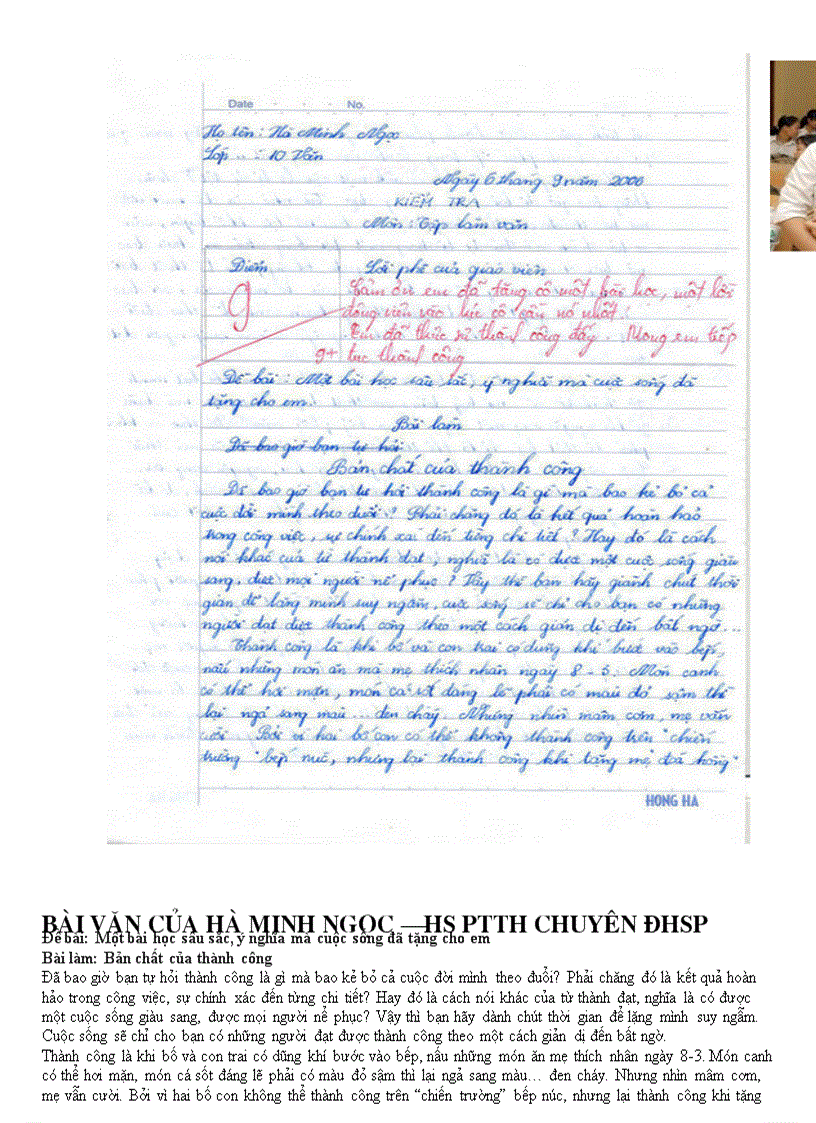 Date . . . No.
Họ tên : Hà Minh Ngọc
Lớp : 10 Văn
Ngày 6 tháng 9 năm 2006
KIỂM TRA
Môn : Tập làm văn
Điểm Lời phê của giáo viên
9 Cảm ơn em đã tặng cô một bài học, một lời
động viên vào lúc cô cần nó nhất!
Em đã thực sự thành công đấy. Mong em tiếp
9+ tục thành công
Đề bài : Một bài học sâu sắc, ý nghĩa mà cuộc sống đã
tặng cho em.
Bài làm
Đã bao giờ bạn tự hỏi
Bản chất của thành công
Đã bao giờ bạn tự hỏi thành công là gì mà bao kẻ bỏ cả
cuộc đời mình theo đuổi? Phải chăng đó là kết quả hoàn hảo
trong công việc, sự chính xác đến từng chi tiết? Hay đó là cách
nói khác của từ thành đạt, nghĩa là có được một cuộc sống giàu
sang, được mọi người nể phục? Vậy thì bạn hãy giành chút thời
gian để lặng mình suy ngẫm, cuộc sống sẽ chỉ cho bạn có những
người đạt được thành công theo một cách giản dị đến bất ngờ...
Thành công là khi bố và con trai có dũng khí bước vào bếp,
nấu những món ăn mà mẹ thích nhân ngày 8 - 3. Món canh
có thể hơi mặn, món cá sốt đáng lẽ phải có màu đỏ sậm thì
lại ngả sang màu ... đen cháy. Nhưng nhìn mâm cơm, mẹ vẫn
cười. Bởi vì hai bố con có thể không thành công trên "chiến
trường" bếp núc, nhưng lại thành công khi tặng mẹ "đoá hồng"
HONG HA
BÀI VĂN CỦA HÀ MINH NGỌC —HS PTTH CHUYÊN ĐHSP
Đề bài: Một bài học sâu sắc, ý nghĩa mà cuộc sống đã tặng cho em
Bài làm: Bản chất của thành công
Đã bao giờ bạn tự hỏi thành công là gì mà bao kẻ bỏ cả cuộc đời mình theo đuổi? Phải chăng đó là kết quả hoàn
hảo trong công việc, sự chính xác đến từng chi tiết? Hay đó là cách nói khác của từ thành đạt, nghĩa là có được
một cuộc sống giàu sang, được mọi người nể phục? Vậy thì bạn hãy dành chút thời gian để lặng mình suy ngẫm.
Cuộc sống sẽ chỉ cho bạn có những người đạt được thành công theo một cách giản dị đến bất ngờ.
Thành công là khi bố và con trai có dũng khí bước vào bếp, nấu những món ăn mẹ thích nhân ngày 8-3. Món canh
có thể hơi mặn, món cá sốt đáng lẽ phải có màu đỏ sậm thì lại ngả sang màu… đen cháy. Nhưng nhìn mâm cơm,
mẹ vẫn cười. Bởi vì hai bố con không thể thành công trên “chiến trường” bếp núc, nhưng lại thành công khi tặng